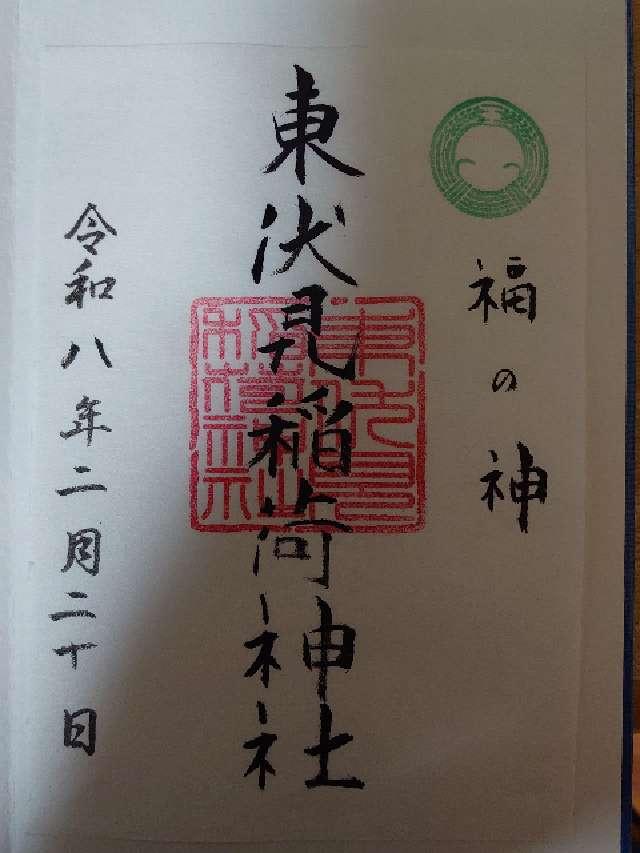 福の神
東伏見稲荷神社
令和八年二月二十日